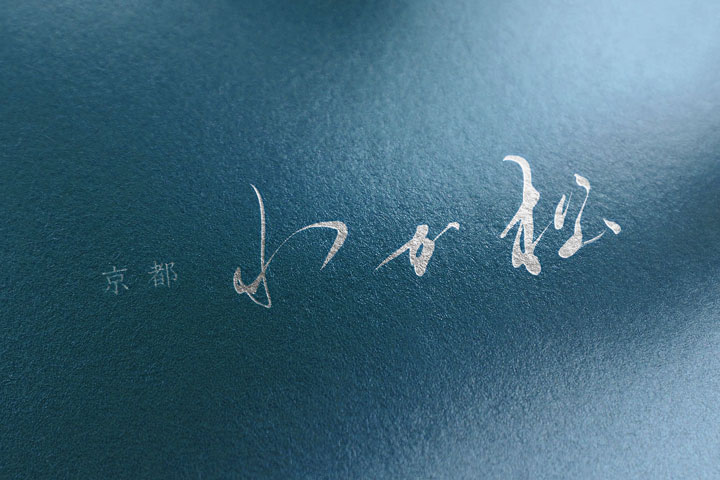 京都 わか松